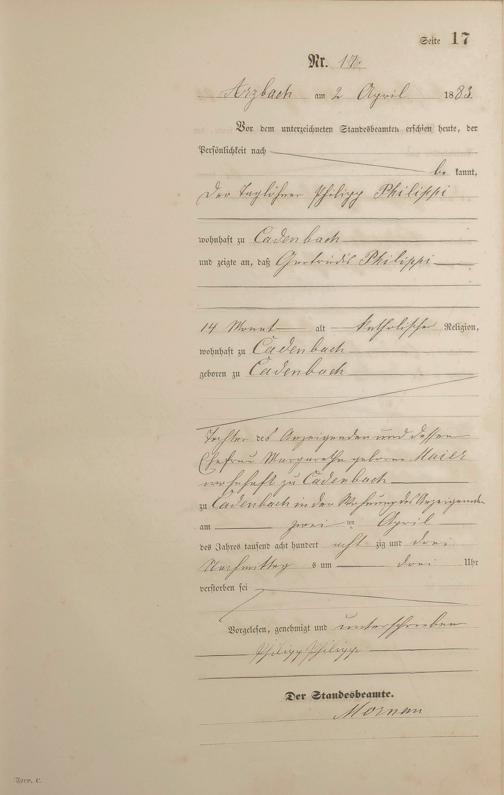 Seite 17
Nr. 17.
Arzbach am 2 April 1883.
Vor dem unterzeichneten Standesbeamten erschien heute, der
Persönlichkeit nach
be kannt,
der Taglöhner Philipp Philippi
wohnhaft zu Cadenbach
und zeigte an, daß Gertrudis Philippi
14 Monat alt katholische Religion,
wohnhaft zu Cadenbach
geboren zu Cadenbach
Tochter des Anzeigenden und dessen
Ehefrau Margaretha geborne Maier
wohnhaft zu Cadenbach
zu Cadenbach in der Wohnung des Anzeigenden
am zwei ten April
des Jahres tausend acht hundert acht zig und drei
Nachmittag s um drei Uhr
verstorben sei
Vorgelesen, genehmigt und unterschrieben
Philipp Philippi
Der Standesbeamte.
Form. C.